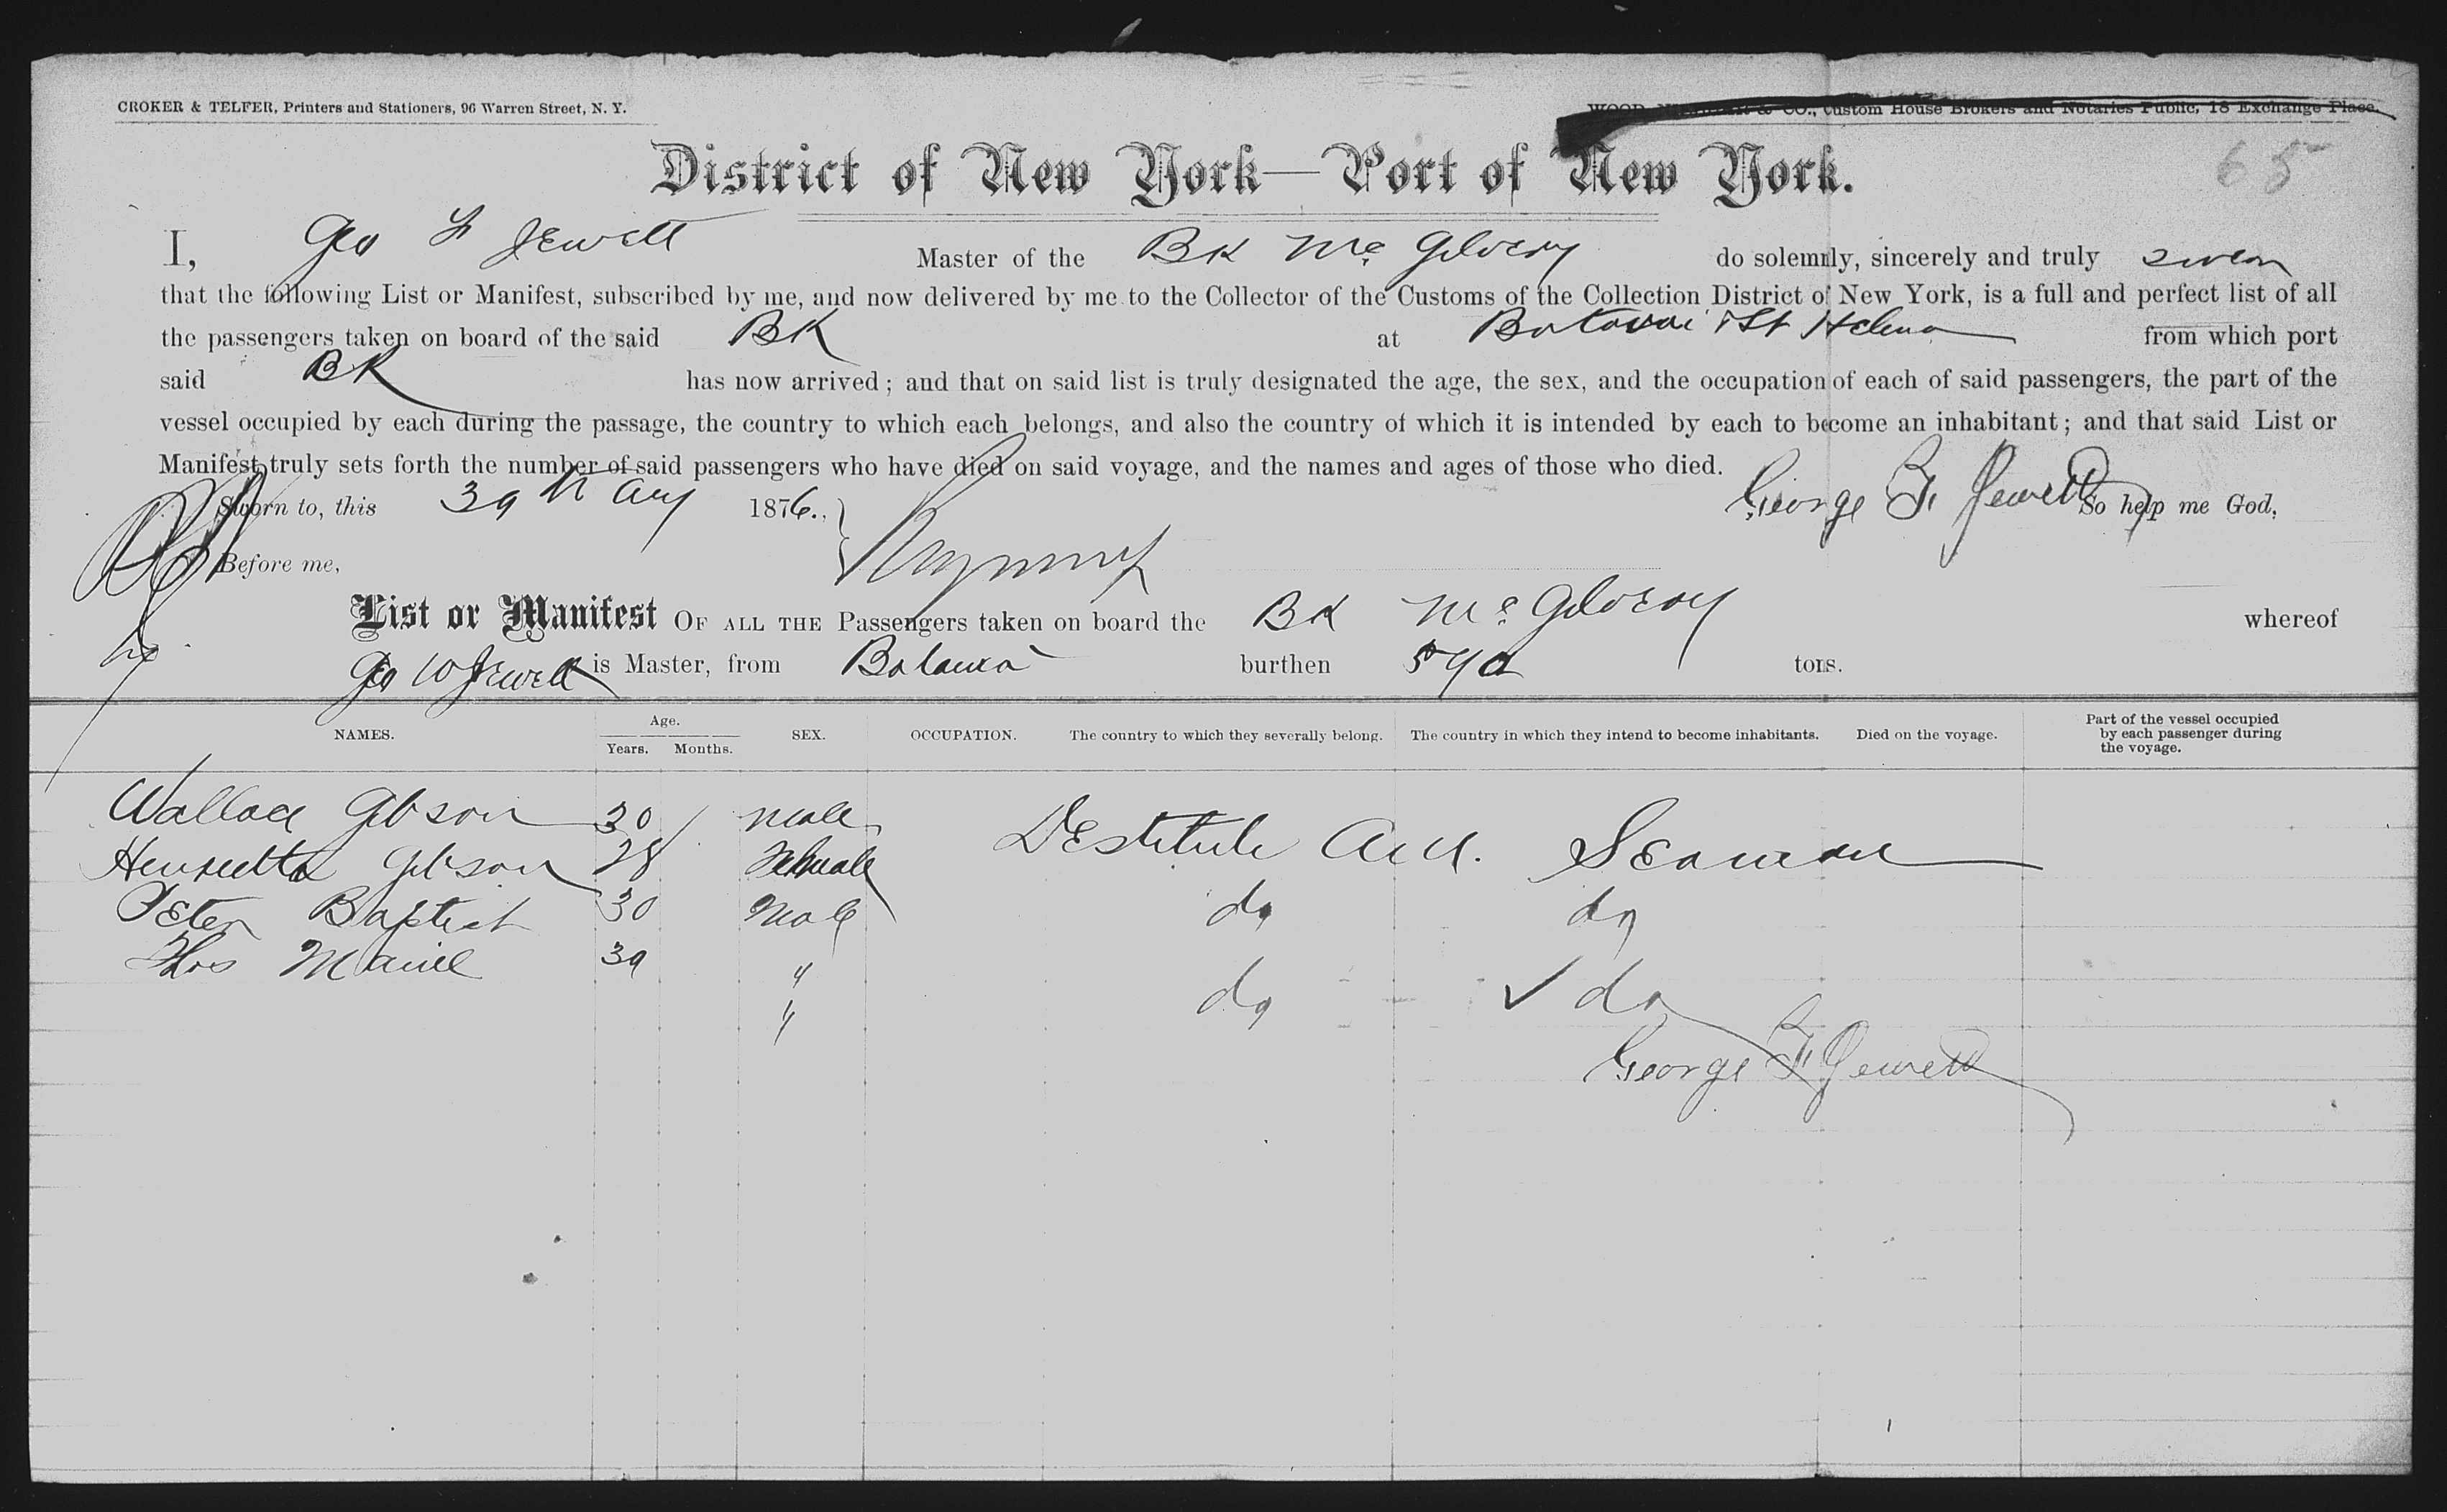 CROKER & TELFER, Printers and Stationers, 96 Warren Street, N. Y.
& CO., Custom House Brokers and Notaries Public, 18 Exchange Place.
District of New York—Port of New York.
65
I, Geo F Jewett Master of the BK Mc Gilvery do solemnly, sincerely and truly swear
that the following List or Manifest, subscribed by me, and now delivered by me to the Collector of the Customs of the Collection District of New York, is a full and perfect list of all
the passengers taken on board of the said BK at Batavia & St Helena from which port
said BK has now arrived; and that on said list is truly designated the age, the sex, and the occupation of each of said passengers, the part of the
vessel occupied by each during the passage, the country to which each belongs, and also the country of which it is intended by each to become an inhabitant; and that said List or
Manifest truly sets forth the number of said passengers who have died on said voyage, and the names and ages of those who died.
Sworn to, this 30th Aug 1876. George F. Jewett So help me God,
Before me,
List or Manifest OF ALL THE Passengers taken on board the BK Mc Gilvery whereof
Geo W Jewett is Master, from Batavia burthen tons.
NAMES. Age. Years. Months. SEX. OCCUPATION. The country to which they severally belong. The country in which they intend to become inhabitants. Died on the voyage. Part of the vessel occupied by each passenger during the voyage.
Wallace Gibson 30 male Destitute Am. Seaman
Henrietta Gibson 28 Female
Peter Baptist 30 Male do do
Thos 30 "
" do ✓ do
George F. Jewett